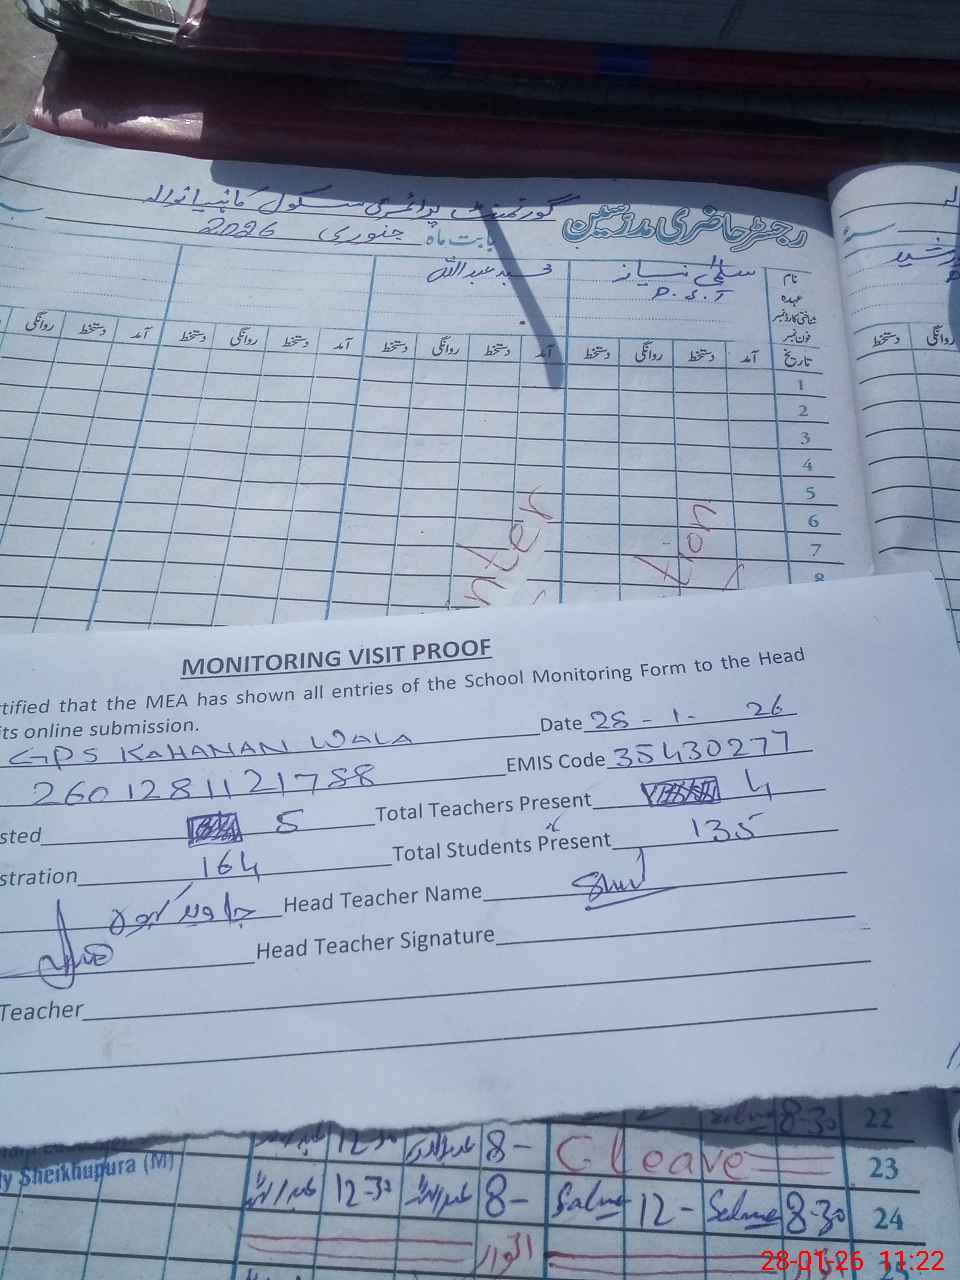 رجسٹر حاضری مدرسین گورنمنٹ پرائمری سکول کاہنیانوالہ
بابت ماہ جنوری 2026
نام سلمیٰ نیاز عبداللہ
عہدہ P.S.T
شناختی کارڈ نمبر
فون نمبر
تاریخ آمد دستخط روانگی دستخط آمد دستخط روانگی دستخط آمد دستخط روانگی دستخط آمد دستخط روانگی
دستخط روانگی
1
2
3
4
5
6
7
8
nter tion
MONITORING VISIT PROOF
rtified that the MEA has shown all entries of the School Monitoring Form to the Head
its online submission.
GPS KAHANAN WALA Date 28-1-26
2601281121788 EMIS Code 35430277
sted 5 Total Teachers Present 4
stration 164 Total Students Present 135
جاوید Head Teacher Name
Head Teacher Signature
Teacher
Salma 8-30 22
12-30 8- C Leave 23
ly Sheikhupura (M)
12-30 8- Salma 12- Salma 8-30 24
اتوار
28-01-26 11:22